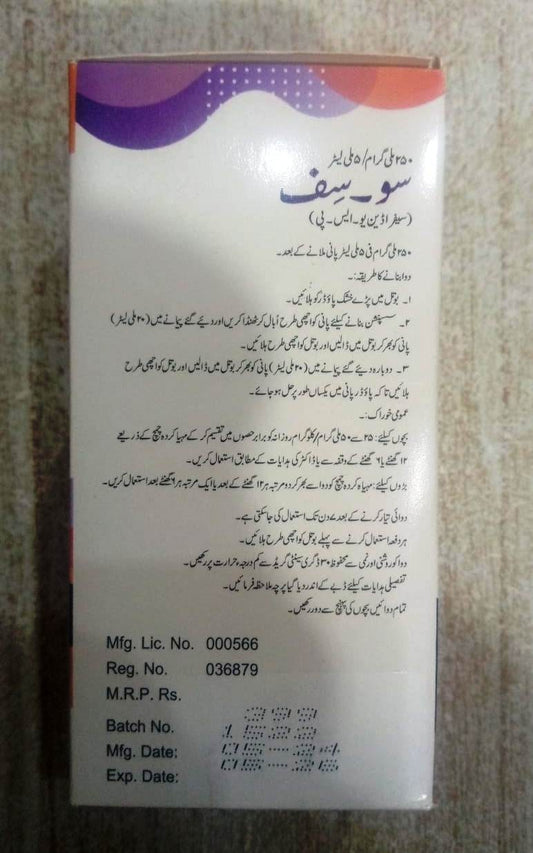 ۲۵۰ ملی گرام/۵ ملی لیٹر
سو۔سِف
(سیفراڈین یو۔ایس۔پی)
۲۵۰ ملی گرام فی ۵ ملی لیٹر پانی ملانے کے بعد۔
دوا بنانے کا طریقہ:۔
۱۔ بوتل میں پڑے خشک پاؤڈر کو ہلائیں۔
۲۔ سسپنشن بنانے کیلئے پانی کو اچھی طرح اُبال کر ٹھنڈا کریں اور دیئے گئے پیمانے میں (۲۰ ملی لیٹر)
پانی کو بھر کر بوتل میں ڈالیں اور بوتل کو اچھی طرح ہلائیں۔
۳۔ دوبارہ دیئے گئے پیمانے میں (۲۰ ملی لیٹر) پانی کو بھر کر بوتل میں ڈالیں اور بوتل کو اچھی طرح
ہلائیں تاکہ پاؤڈر پانی میں یکساں طور پر حل ہو جائے۔
عمومی خوراک:۔
بچوں کیلئے: ۲۵ سے ۵۰ ملی گرام/کلوگرام روزانہ کو برابر حصوں میں تقسیم کر کے مہیا کردہ چمچ کے ذریعے
۱۲ گھنٹے یا ۶ گھنٹے کے وقفہ سے یا ڈاکٹر کی ہدایات کے مطابق استعمال کریں۔
بڑوں کیلئے: مہیا کردہ چمچ کو دوا سے بھر کر دو مرتبہ ہر ۱۲ گھنٹے کے بعد یا ایک مرتبہ ہر ۶ گھنٹے بعد استعمال کریں۔
دوائی تیار کرنے کے بعد ۷ دن تک استعمال کی جاسکتی ہے۔
ہر دفعہ استعمال کرنے سے پہلے بوتل کو اچھی طرح ہلائیں۔
دوا کو روشنی اور نمی سے محفوظ ۳۰ ڈگری سینٹی گریڈ سے کم درجہ حرارت پر رکھیں۔
تفصیلی ہدایات کیلئے ڈبے کے اندر دیا گیا پرچہ ملاحظہ فرمائیں۔
تمام دوائیں بچوں کی پہنچ سے دور رکھیں۔
Mfg. Lic. No. 000566
Reg. No. 036879
M.R.P. Rs.
Batch No.
Mfg. Date: 05-24
Exp. Date: 05-26